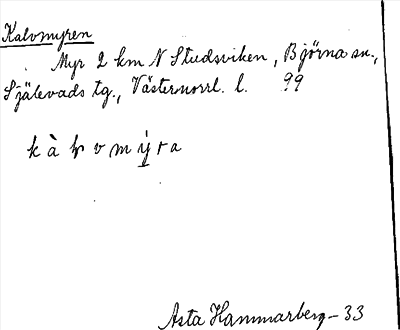 Kalvmyren
Myr 2 km N Studsviken, Björna sn.,
Själevads tg., Västernorrl. l. 99
k à ƕ v m y̆ r a
Asta Hammarberg - 33